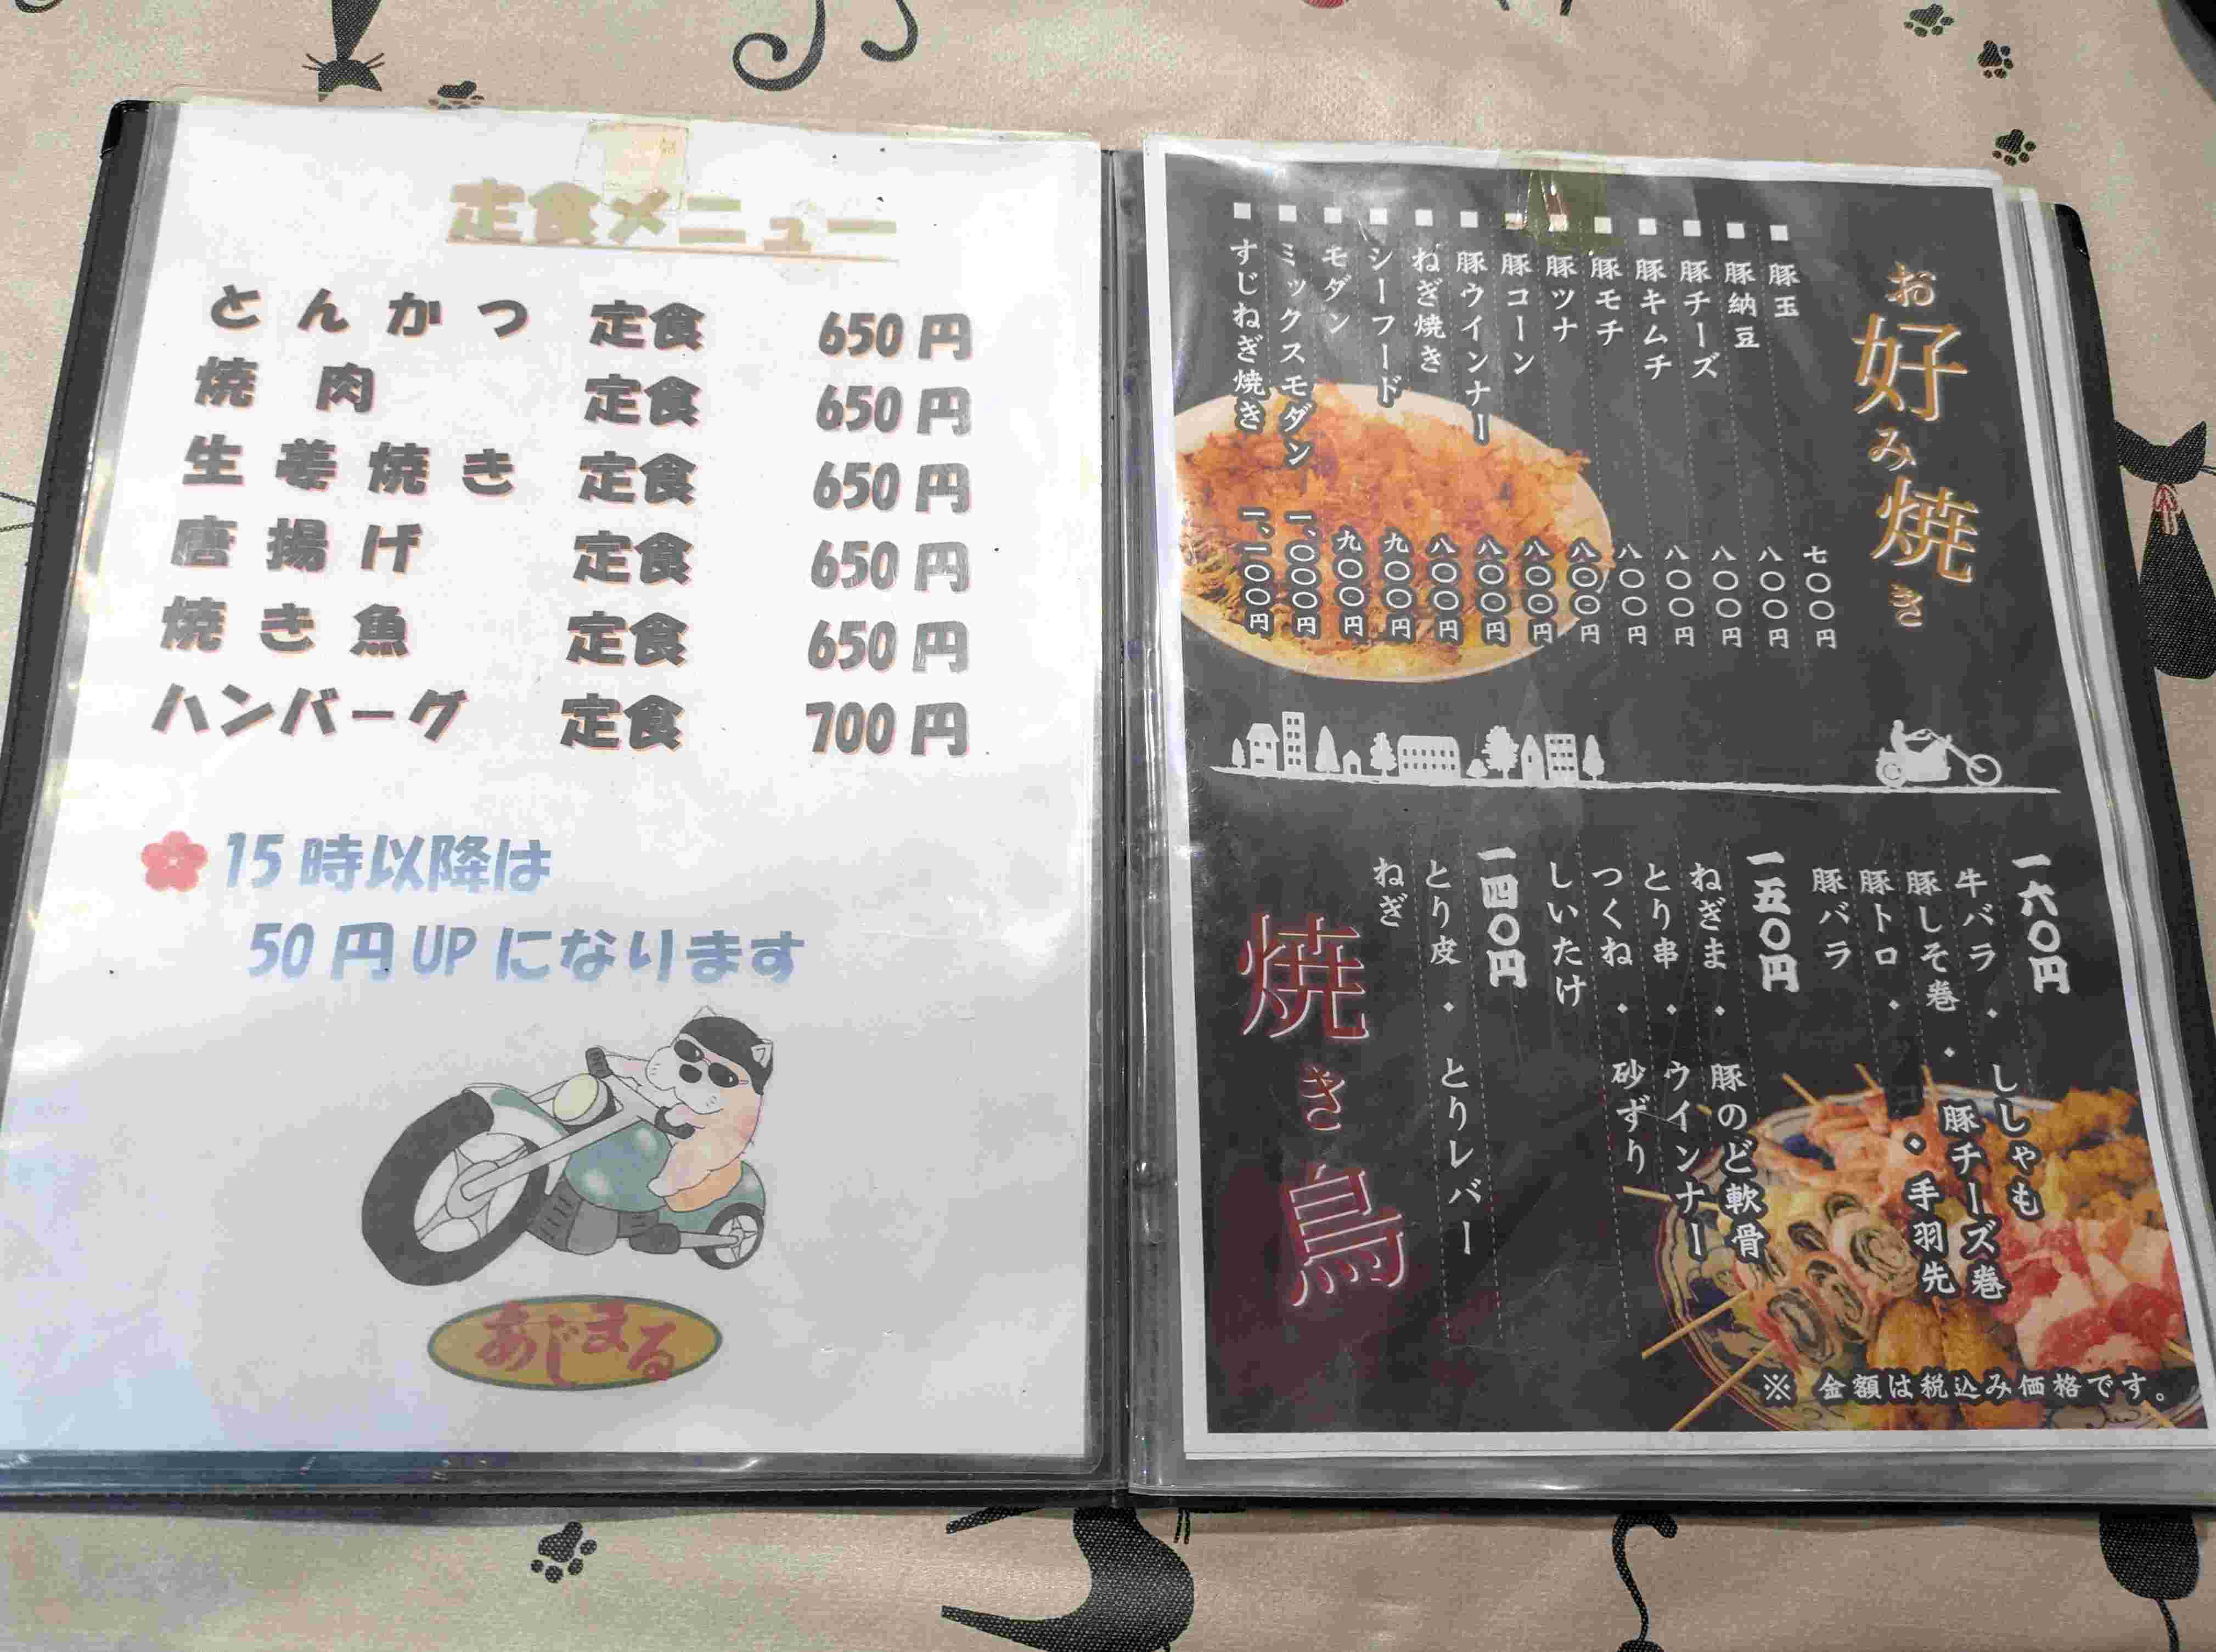 定食メニュー
とんかつ 定食 650円
焼肉 定食 650円
生姜焼き 定食 650円
唐揚げ 定食 650円
焼き魚 定食 650円
ハンバーグ 定食 700円
15時以降は
50円UPになります
あじまる
お好み焼き
■豚玉 七〇〇円
■豚納豆 八〇〇円
■豚チーズ 八〇〇円
■豚キムチ 八〇〇円
■豚モチ 八〇〇円
■豚ツナ 八〇〇円
■豚コーン 八〇〇円
■豚ウインナー 八〇〇円
■ねぎ焼き 八〇〇円
■シーフード 九〇〇円
■モダン 九〇〇円
■ミックスモダン 一、〇〇〇円
■すじねぎ焼き 一、一〇〇円
一六〇円
牛バラ・ししゃも
豚しそ巻・豚チーズ巻
豚トロ・手羽先
豚バラ
一五〇円
ねぎま・豚のど軟骨
とり串・ウインナー
つくね・砂ずり
しいたけ
一四〇円
とり皮・とりレバー
ねぎ
焼き鳥
※金額は税込み価格です。